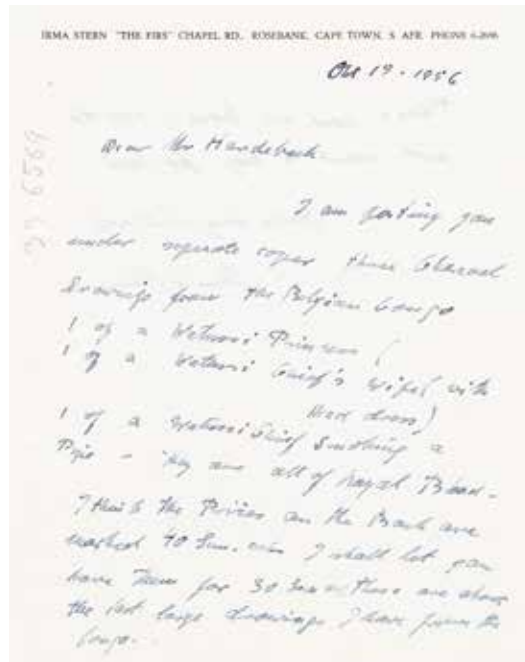 IRMA STERN "THE FIRS" CHAPEL RD., ROSEBANK, CAPE TOWN, S. AFR. PHONE 6-2696
Oct 19 - 1956
Dear Mr
I am posting you
under separate cover three Charcoal
Drawings from the Belgian Congo
1 of a Watussi Princess (
1 of a Watussi Chief's Wife (with
Head dress)
1 of a Watussi Chief Smoking a
Pipe - They are all of Royal Blood -
I think the Prices on the Back are
marked 40 I shall let you
have them for 30 These are
the last large drawings I have from the
Congo.